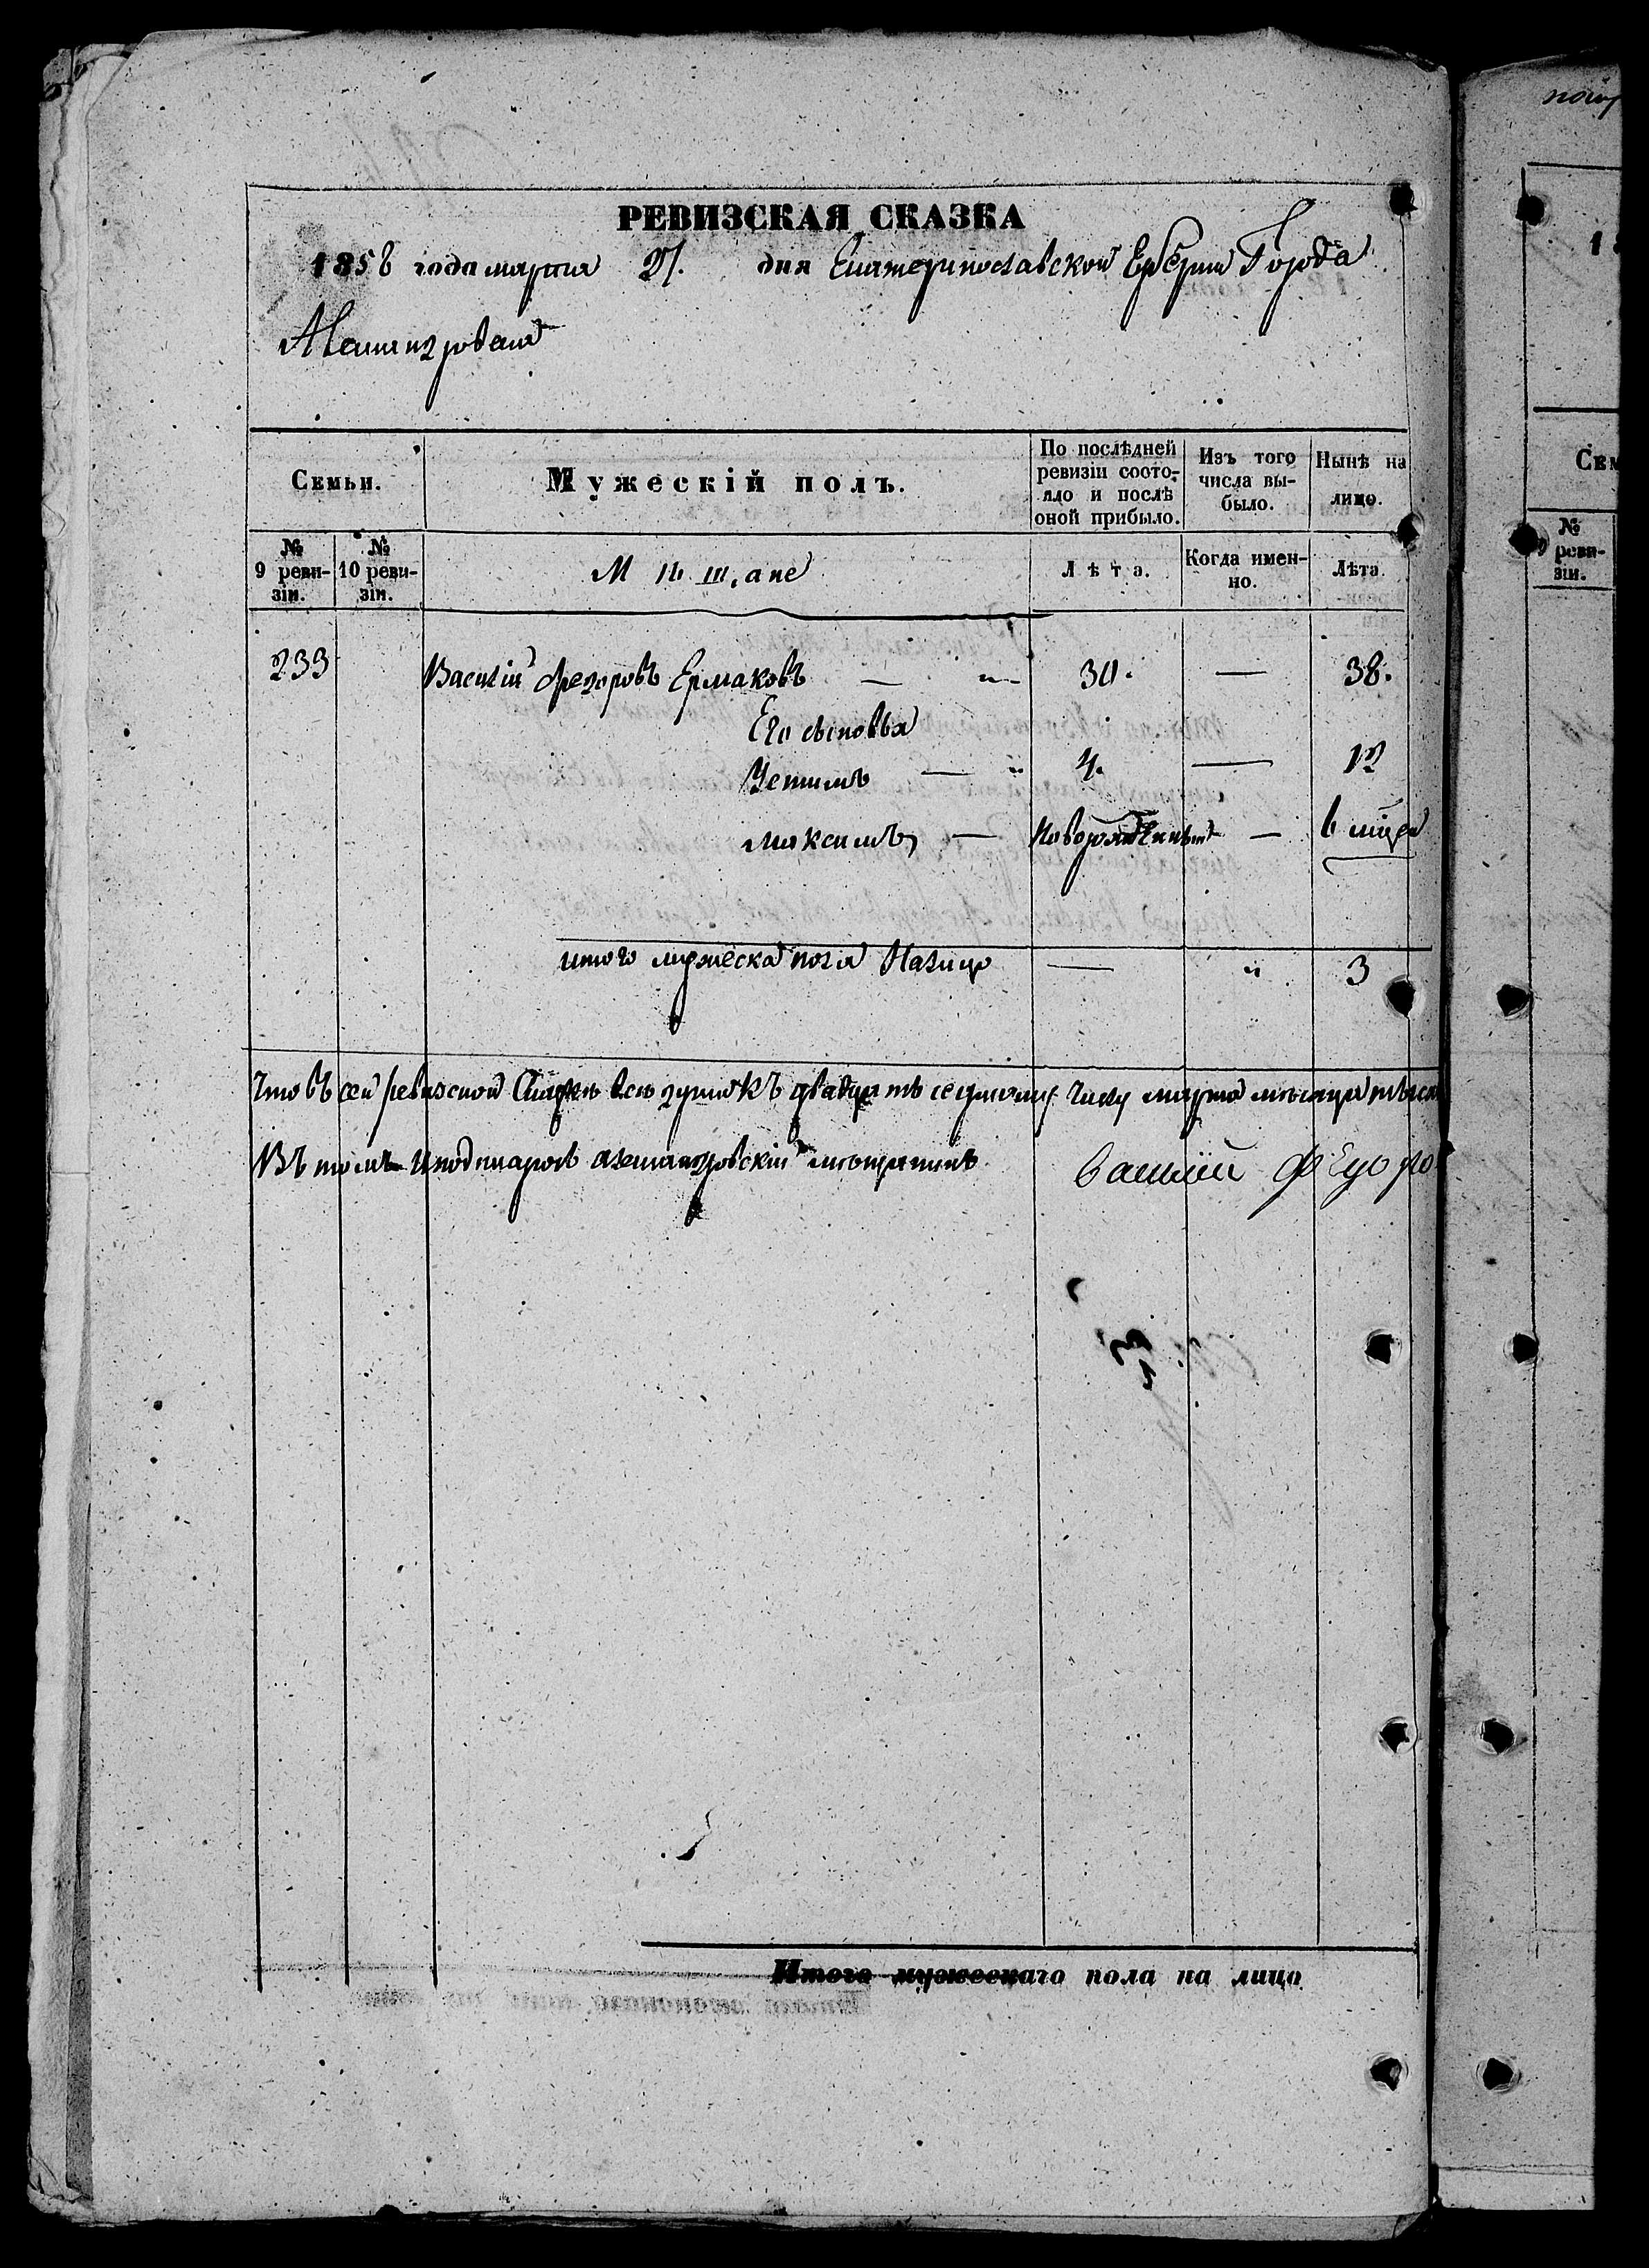 РЕВИЗСКАЯ СКАЗКА
1858 года марта 27. дня Екатеринославской Губерніи Города
Семьи. Мужескій полъ. По послѣдней ревизіи состояло и послѣ оной прибыло. Изъ того числа выбыло. Нынѣ на лицо.
№ 9 ревизіи. № 10 ревизіи. Мѣщане Лѣта. Когда именно. Лѣта.
233 Василій Федоровъ Ермаковъ — " 30. — 38.
Его сыновья
— " 4. — 12
Максимъ — Новорожденный —
итого мужеска пола Налицо — " 3
Что въ сей ревизской Сказкѣ всѣ души къ двадцать седьмому числу марта мѣсяца
Въ томъ и подписался мѣщанинъ Василий Федоро
Итого мужескаго пола на лицо